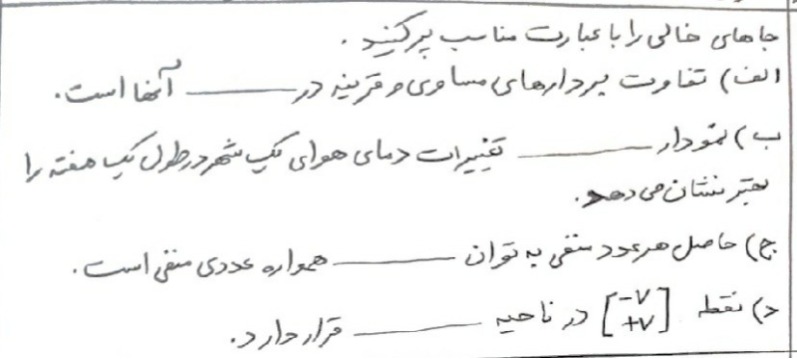 جاهای خالی را با عبارت مناسب پر کنید .
الف) تفاوت بردارهای مساوی و قرینه در ــــــــ آنها است.
ب) نمودار ــــــــ تغییرات دمای هوای یک شهر در طول یک هفته را
بهتر نشان می دهد.
ج) حاصل هر عدد منفی به توان ــــــــ همواره عددی منفی است.
د) نقطه [−۷ +۷] در ناحیه ــــــــ قرار دارد.